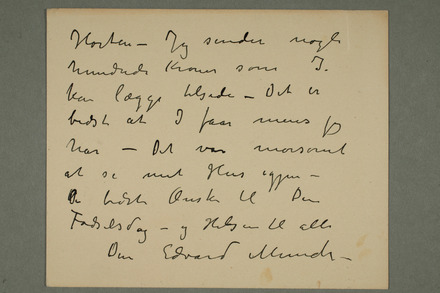 Horten – Jeg sender nogle
hundrede Kroner som I.
kan lægge tilside – Det er
bedst at I faar mens jeg
har – Det var morsomt
at se mit Hus igjen –
De bedste Ønsker til Din
Fødselsdag – og Hilsen til alle
Din Edvard Munch –